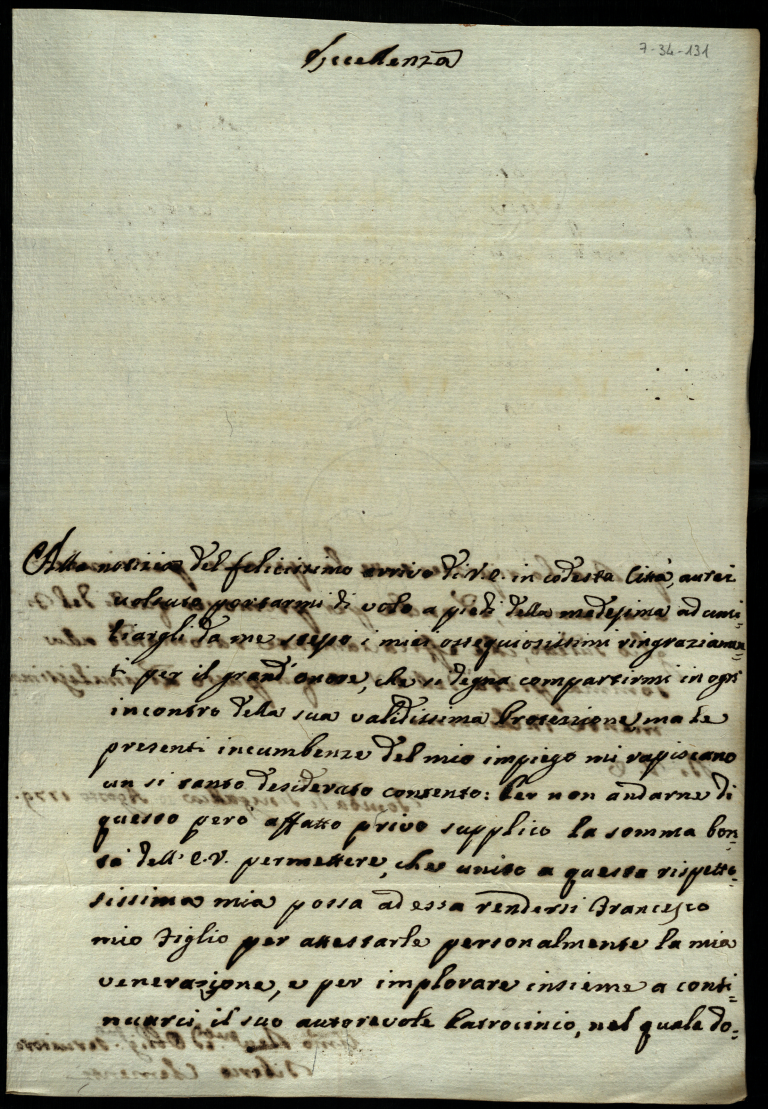 7-34-131
Eccellenza
Alla notizia del felicissimo arrivo di V.E. in codesta Città, aurei
uoluto portarmi di volo a piedi della medesima ad umi-
liargli da me stesso i miei ossequiosissimi ringraziamen-
ti per il grand'onore, che si degna compartirmi in ogni
incontro della sua validissima Protezione, ma le
presenti incumbenze del mio impiego mi rapiscano
un si tanto desiderato contento: Per non andarne di
questo però affatto privo supplico la somma bon-
tà dell'E.V. permettere, che unito a questa rispetto-
sissima mia possa ad essa rendersi Francesco
mio Figlio per attestarle personalmente la mia
venerazione, e per implorare insieme a conti-
nuarci, il suo autorevole Patrocinio, nel quale do-